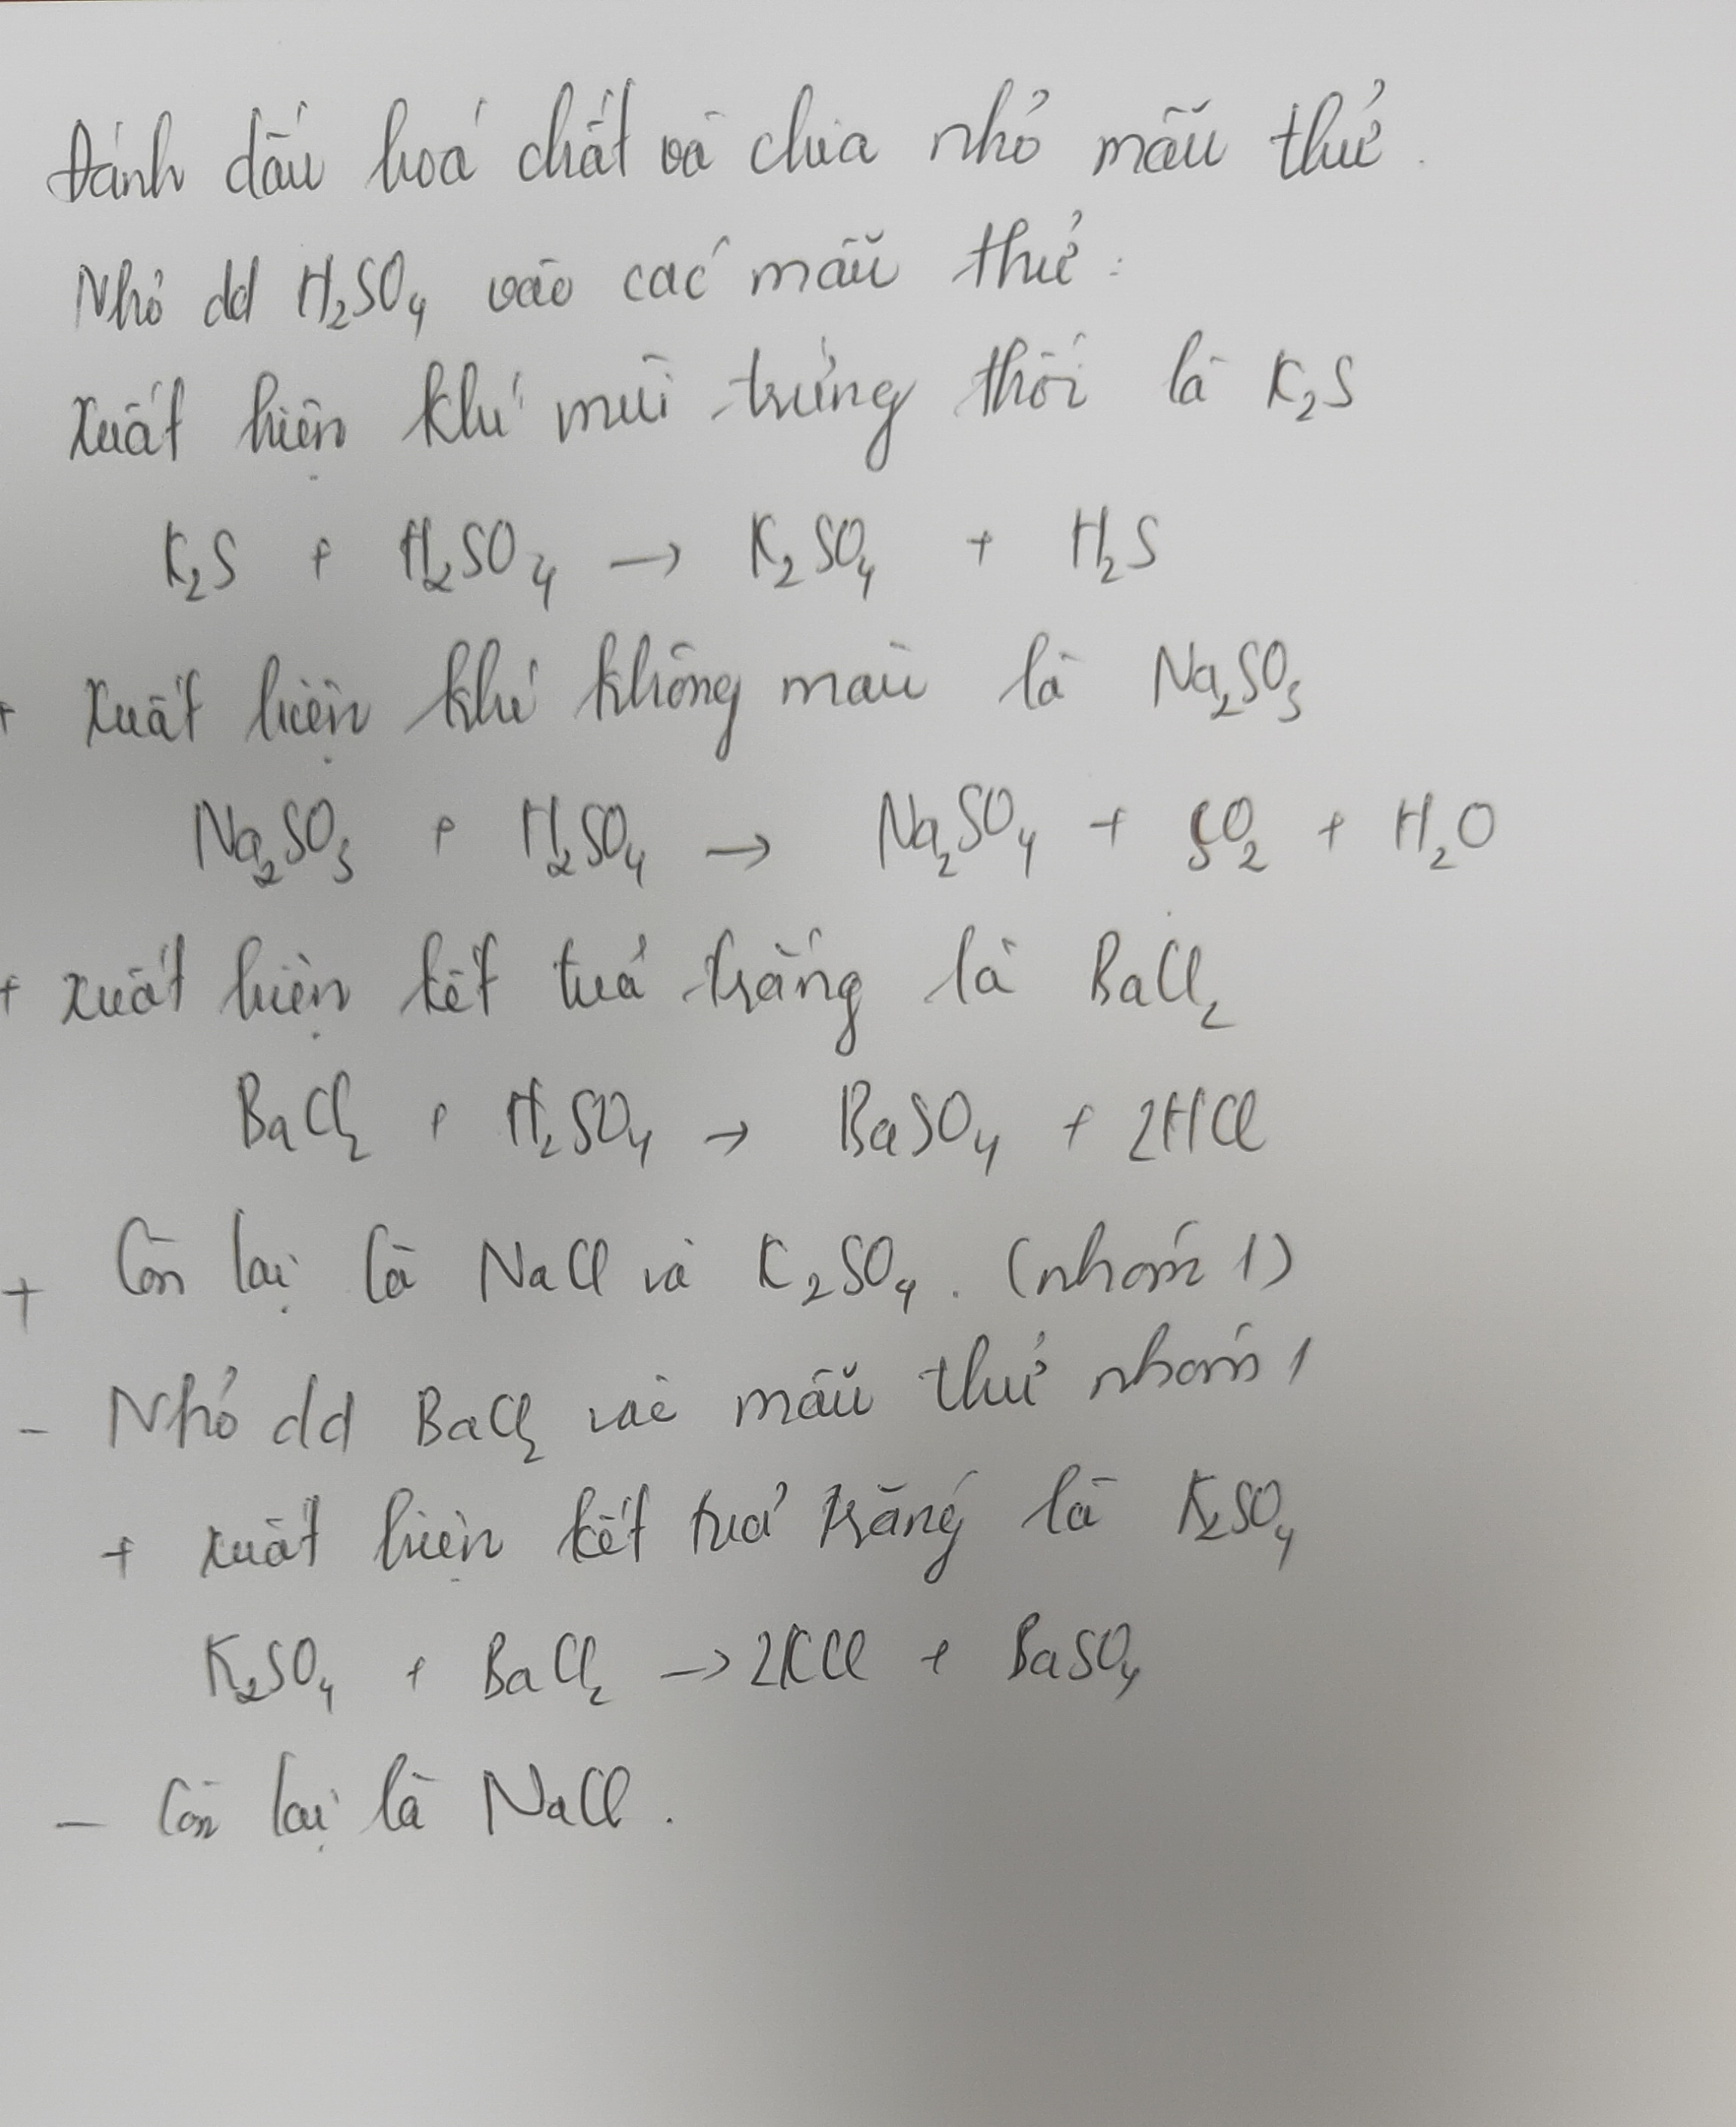 Đánh dấu hoá chất và chia nhỏ mẫu thử.
Nhỏ dd H₂SO₄ vào các mẫu thử:
Xuất hiện khí mùi trứng thối là K₂S
K₂S + H₂SO₄ → K₂SO₄ + H₂S
+ Xuất hiện khí không màu là Na₂SO₃
Na₂SO₃ + H₂SO₄ → Na₂SO₄ + SO₂ + H₂O
+ Xuất hiện kết tủa trắng là BaCl₂
BaCl₂ + H₂SO₄ → BaSO₄ + 2HCl
+ Còn lại là NaCl và K₂SO₄. (nhóm 1)
- Nhỏ dd BaCl₂ vào mẫu thử nhóm 1
+ Xuất hiện kết tủa trắng là K₂SO₄
K₂SO₄ + BaCl₂ → 2KCl + BaSO₄
- Còn lại là NaCl.